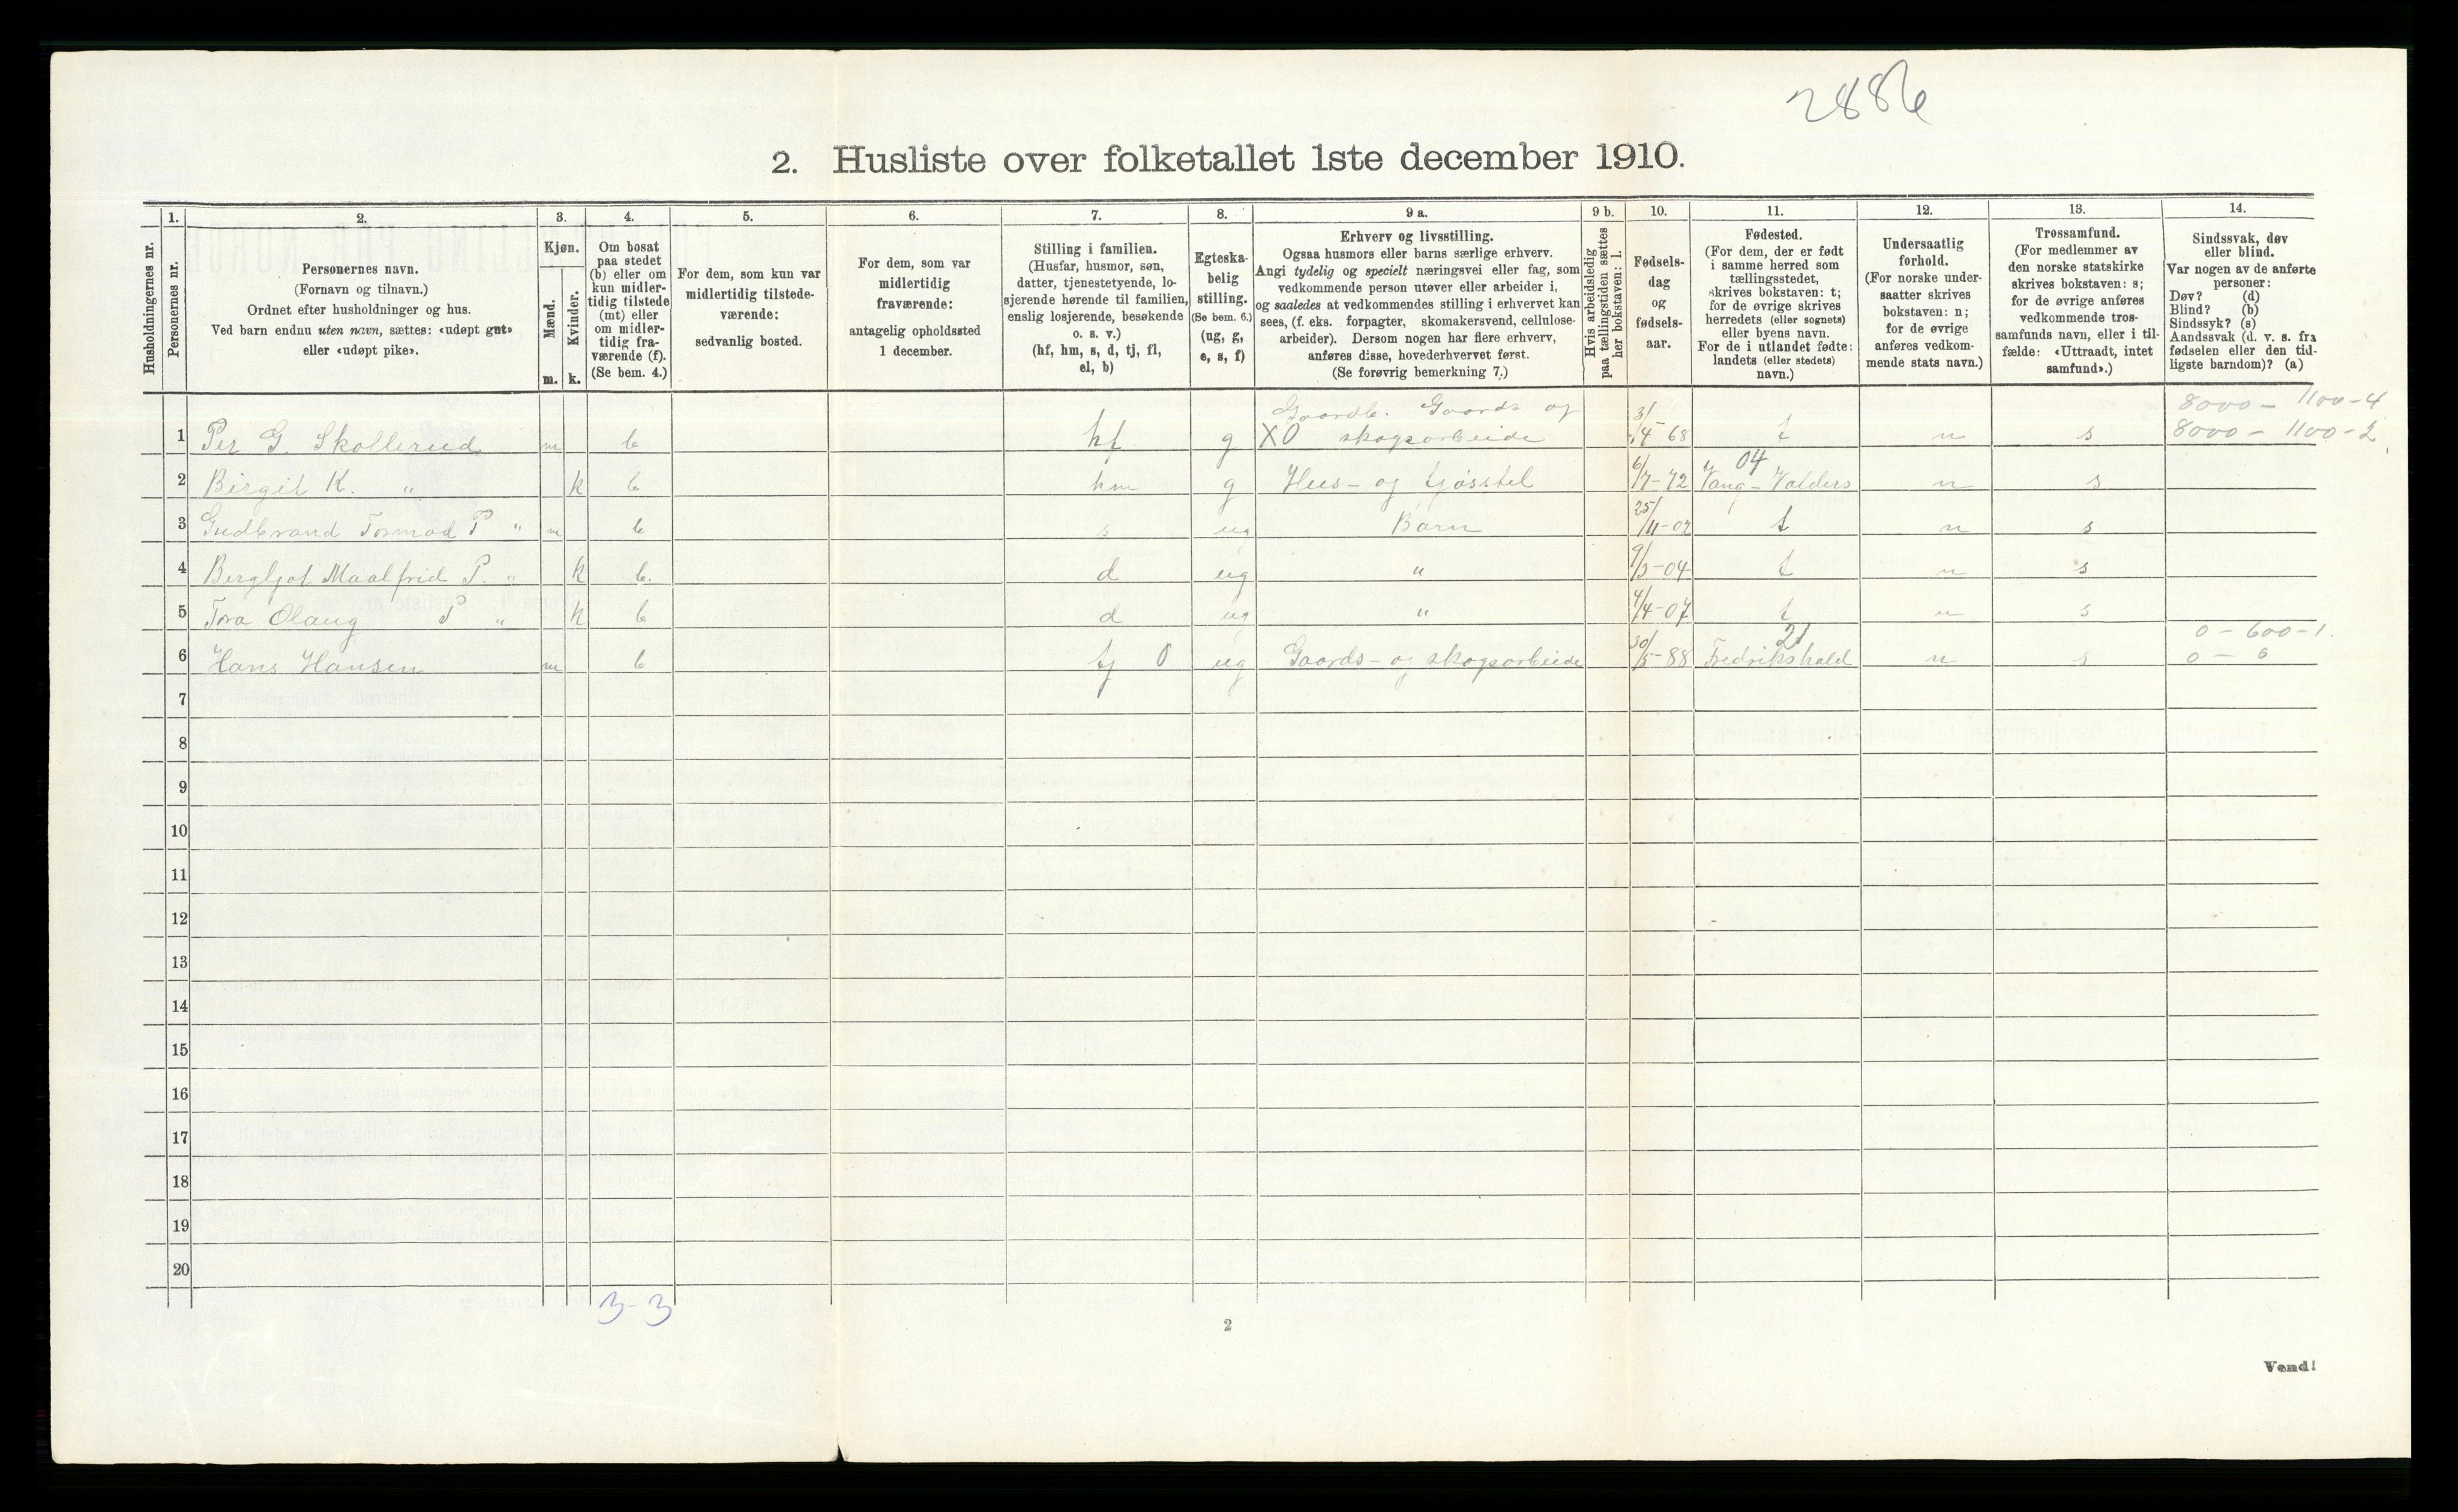 2886
2. Husliste over folketallet 1ste december 1910.
Husholdningernes nr.
1.
Personernes nr.
2.
Personernes navn.
(Fornavn og tilnavn.)
Ordnet efter husholdninger og hus.
Ved barn endnu uten navn, sættes: «udøpt gut»
eller «udøpt pike».
3.
Kjøn.
Mænd.
Kvinder.
m.
k.
4.
Om bosat
paa stedet
(b) eller om
kun midler-
tidig tilstede
(mt) eller
om midler-
tidig fra-
værende (f).
(Se bem. 4.)
5.
For dem, som kun var
midlertidig tilstede-
værende:
sedvanlig bosted.
6.
For dem, som var
midlertidig
fraværende:
antagelig opholdssted
1 december.
7.
Stilling i familien.
(Husfar, husmor, søn,
datter, tjenestetyende, lo-
sjerende hørende til familien,
enslig losjerende, besøkende
o. s. v.)
(hf, hm, s, d, tj, fl,
el, b)
8.
Egteska-
belig
stilling.
(Se bem. 6.)
(ug, g,
e, s, f)
9 a.
Erhverv og livsstilling.
Ogsaa husmors eller barns særlige erhverv.
Angi tydelig og specielt næringsvei eller fag, som
vedkommende person utøver eller arbeider i,
og saaledes at vedkommendes stilling i erhvervet kan
sees, (f. eks. forpagter, skomakersvend, cellulose-
arbeider). Dersom nogen har flere erhverv,
anføres disse, hovederhvervet først.
(Se forøvrig bemerkning 7.)
9 b.
Hvis arbeidsledig
paa tællingstiden sættes
her bokstaven: l.
10.
Fødsels-
dag
og
fødsels-
aar.
11.
Fødested.
(For dem, der er født
i samme herred som
tællingsstedet,
skrives bokstaven: t;
for de øvrige skrives
herredets (eller sognets)
eller byens navn.
For de i utlandet fødte:
landets (eller stedets)
navn.)
12.
Undersaatlig
forhold.
(For norske under-
saatter skrives
bokstaven: n;
for de øvrige
anføres vedkom-
mende stats navn.)
13.
Trossamfund.
(For medlemmer av
den norske statskirke
skrives bokstaven: s;
for de øvrige anføres
vedkommende tros-
samfunds navn, eller i til-
fælde: «Uttraadt, intet
samfund».)
14.
Sindssvak, døv
eller blind.
Var nogen av de anførte
personer:
Døv? (d)
Blind? (b)
Sindssyk? (s)
Aandssvak (d. v. s. fra
fødselen eller den tid-
ligste barndom)? (a)
Gaardb. Gaards og 8000 - 1100-4
1 Per G. Skollerud m b hf g XO skogsarbeide 68 t n s 8000 - 1100-2
04
2 Birgit K. " k b hm g Hus- og fjøsstel 6/7-72 Vang-Valders n s
3 Gudbrand Tormod P " m b s ug Barn 25/11-02 t n s
4 Bergljot Maalfrid P. " k b. d ug " 9/3-04 t n s
5 Tora Olaug P " k b d ug " 4/4-07 t n s
21 0 - 600-1.
6 Hans Hansen m b tj 0 ug Gaards- og skogsarbeide 30/5-88 Fredrikshald n s 0 - 0
7
8
9
10
11
12
13
14
15
16
17
18
19
20
3-3
2
Vend!